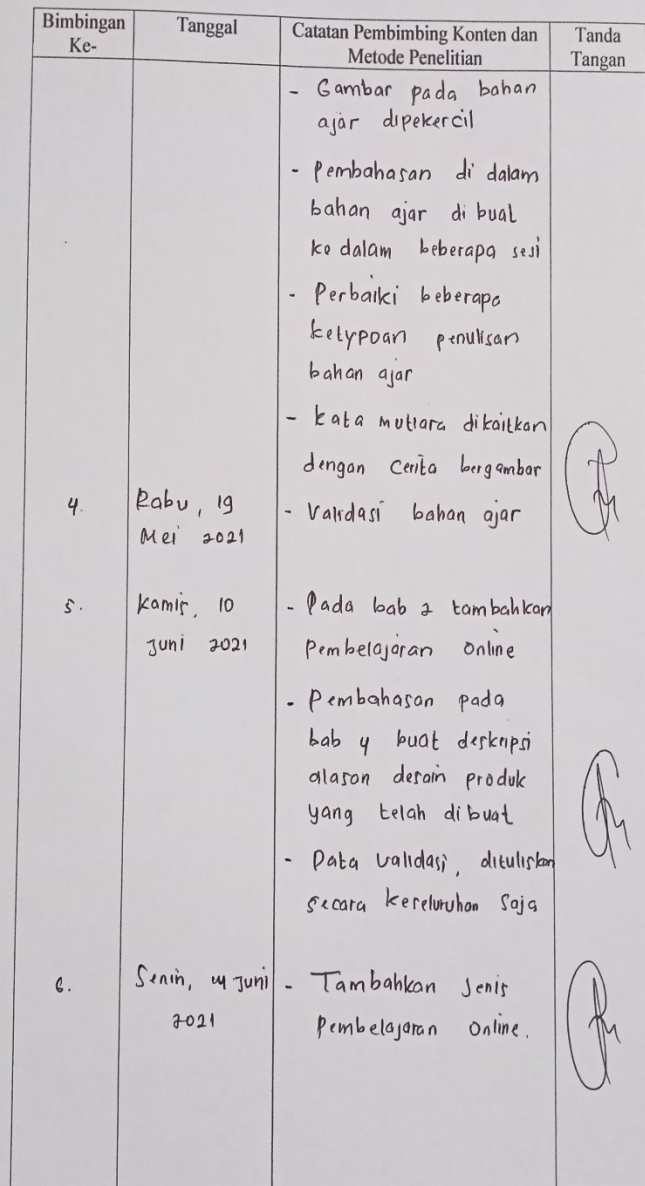 Bimbingan Ke- Tanggal Catatan Pembimbing Konten dan Metode Penelitian Tanda Tangan
- Gambar pada bahan
ajar dipekercil
- Pembahasan di dalam
bahan ajar di buat
ke dalam beberapa sesi
- Perbaiki beberapa
ketypoan penulisan
bahan ajar
- kata mutiara dikaitkan
dengan cerita bergambar
4. Rabu, 19 - Validasi bahan ajar
Mei 2021
5. Kamis, 10 - Pada bab 2 tambahkan
Juni 2021 pembelajaran online
- Pembahasan pada
bab 4 buat deskripsi
alasan desain produk
yang telah di buat
- Data validasi, dituliskan
secara keseluruhan saja
6. Senin, Juni - Tambahkan Jenis
2021 pembelajaran online.